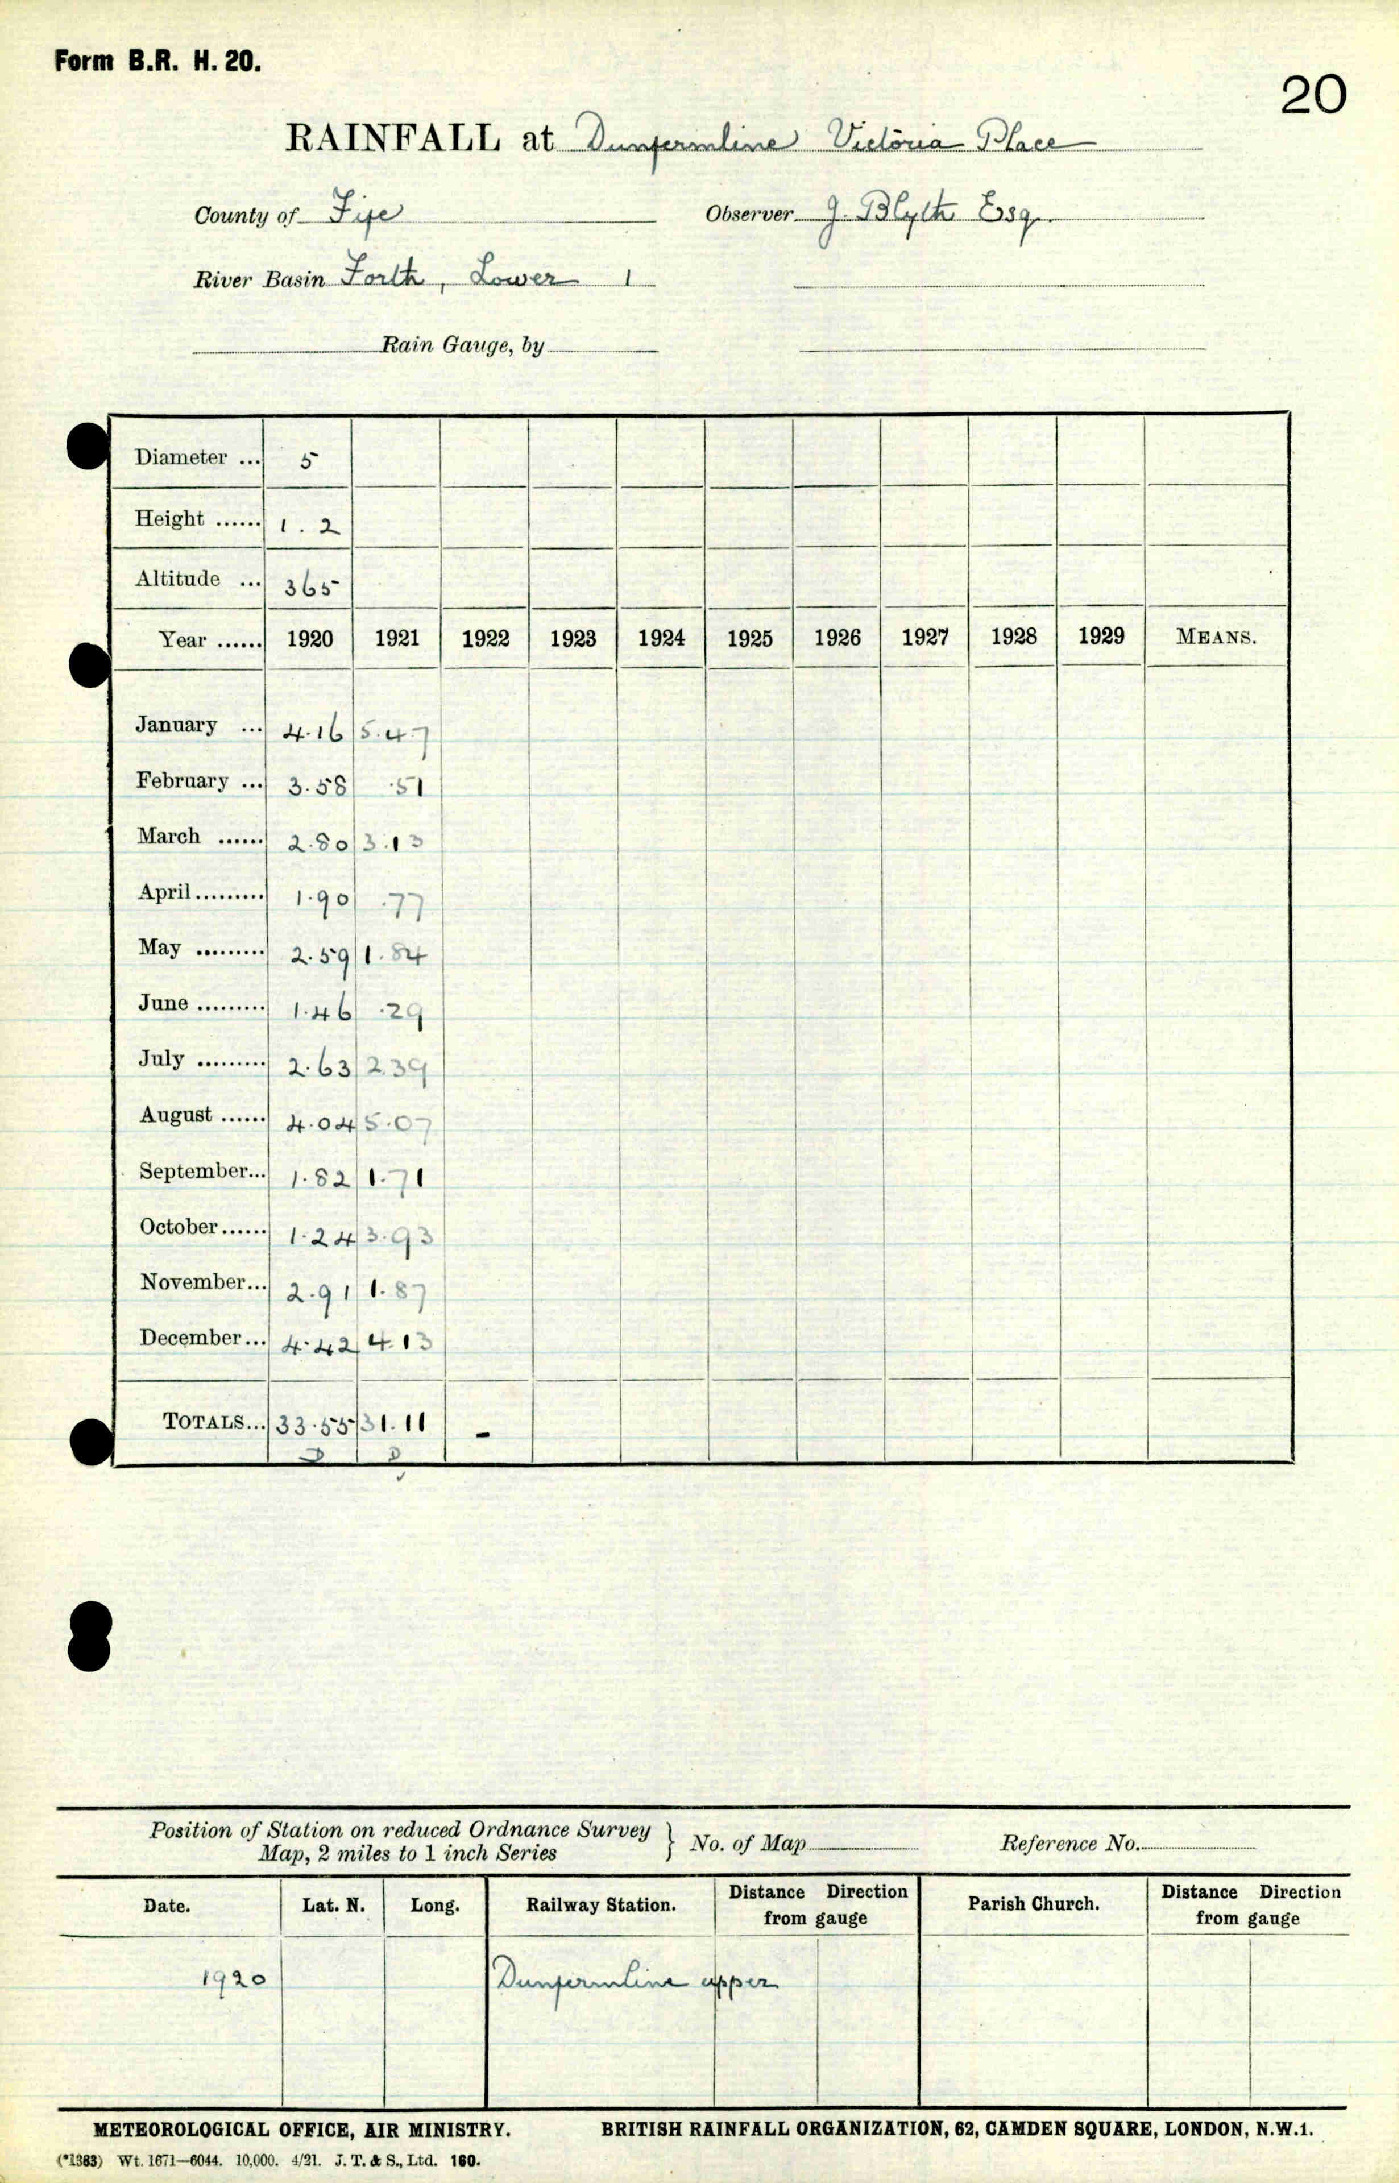 Form B.R. H. 20.
20
RAINFALL at Dunfermline Victoria Place
County of Fife Observer J. Blyth Esq.
River Basin Forth, Lower 1
Rain Gauge, by
Diameter ... 5
Height ...... 1.2
Altitude ... 365
Year ...... 1920 1921 1922 1923 1924 1925 1926 1927 1928 1929 MEANS.
January ... 4.16 5.47
February ... 3.58 .51
March ...... 2.80 3.13
April ......... 1.90 .77
May ......... 2.59 1.84
June ......... 1.46 .29
July ......... 2.63 2.39
August ...... 4.04 5.07
September... 1.82 1.71
October...... 1.24 3.93
November... 2.91 1.87
December... 4.42 4.13
TOTALS... 33.55 31.11 -
D D
Position of Station on reduced Ordnance Survey
Map, 2 miles to 1 inch Series } No. of Map Reference No.
Date. Lat. N. Long. Railway Station. Distance Direction from gauge Parish Church. Distance Direction from gauge
1920 Dunfermline upper
METEOROLOGICAL OFFICE, AIR MINISTRY. BRITISH RAINFALL ORGANIZATION, 62, CAMDEN SQUARE, LONDON, N.W.1.
(*1383) Wt. 1671—6044. 10,000. 4/21. J. T. & S., Ltd. 160.